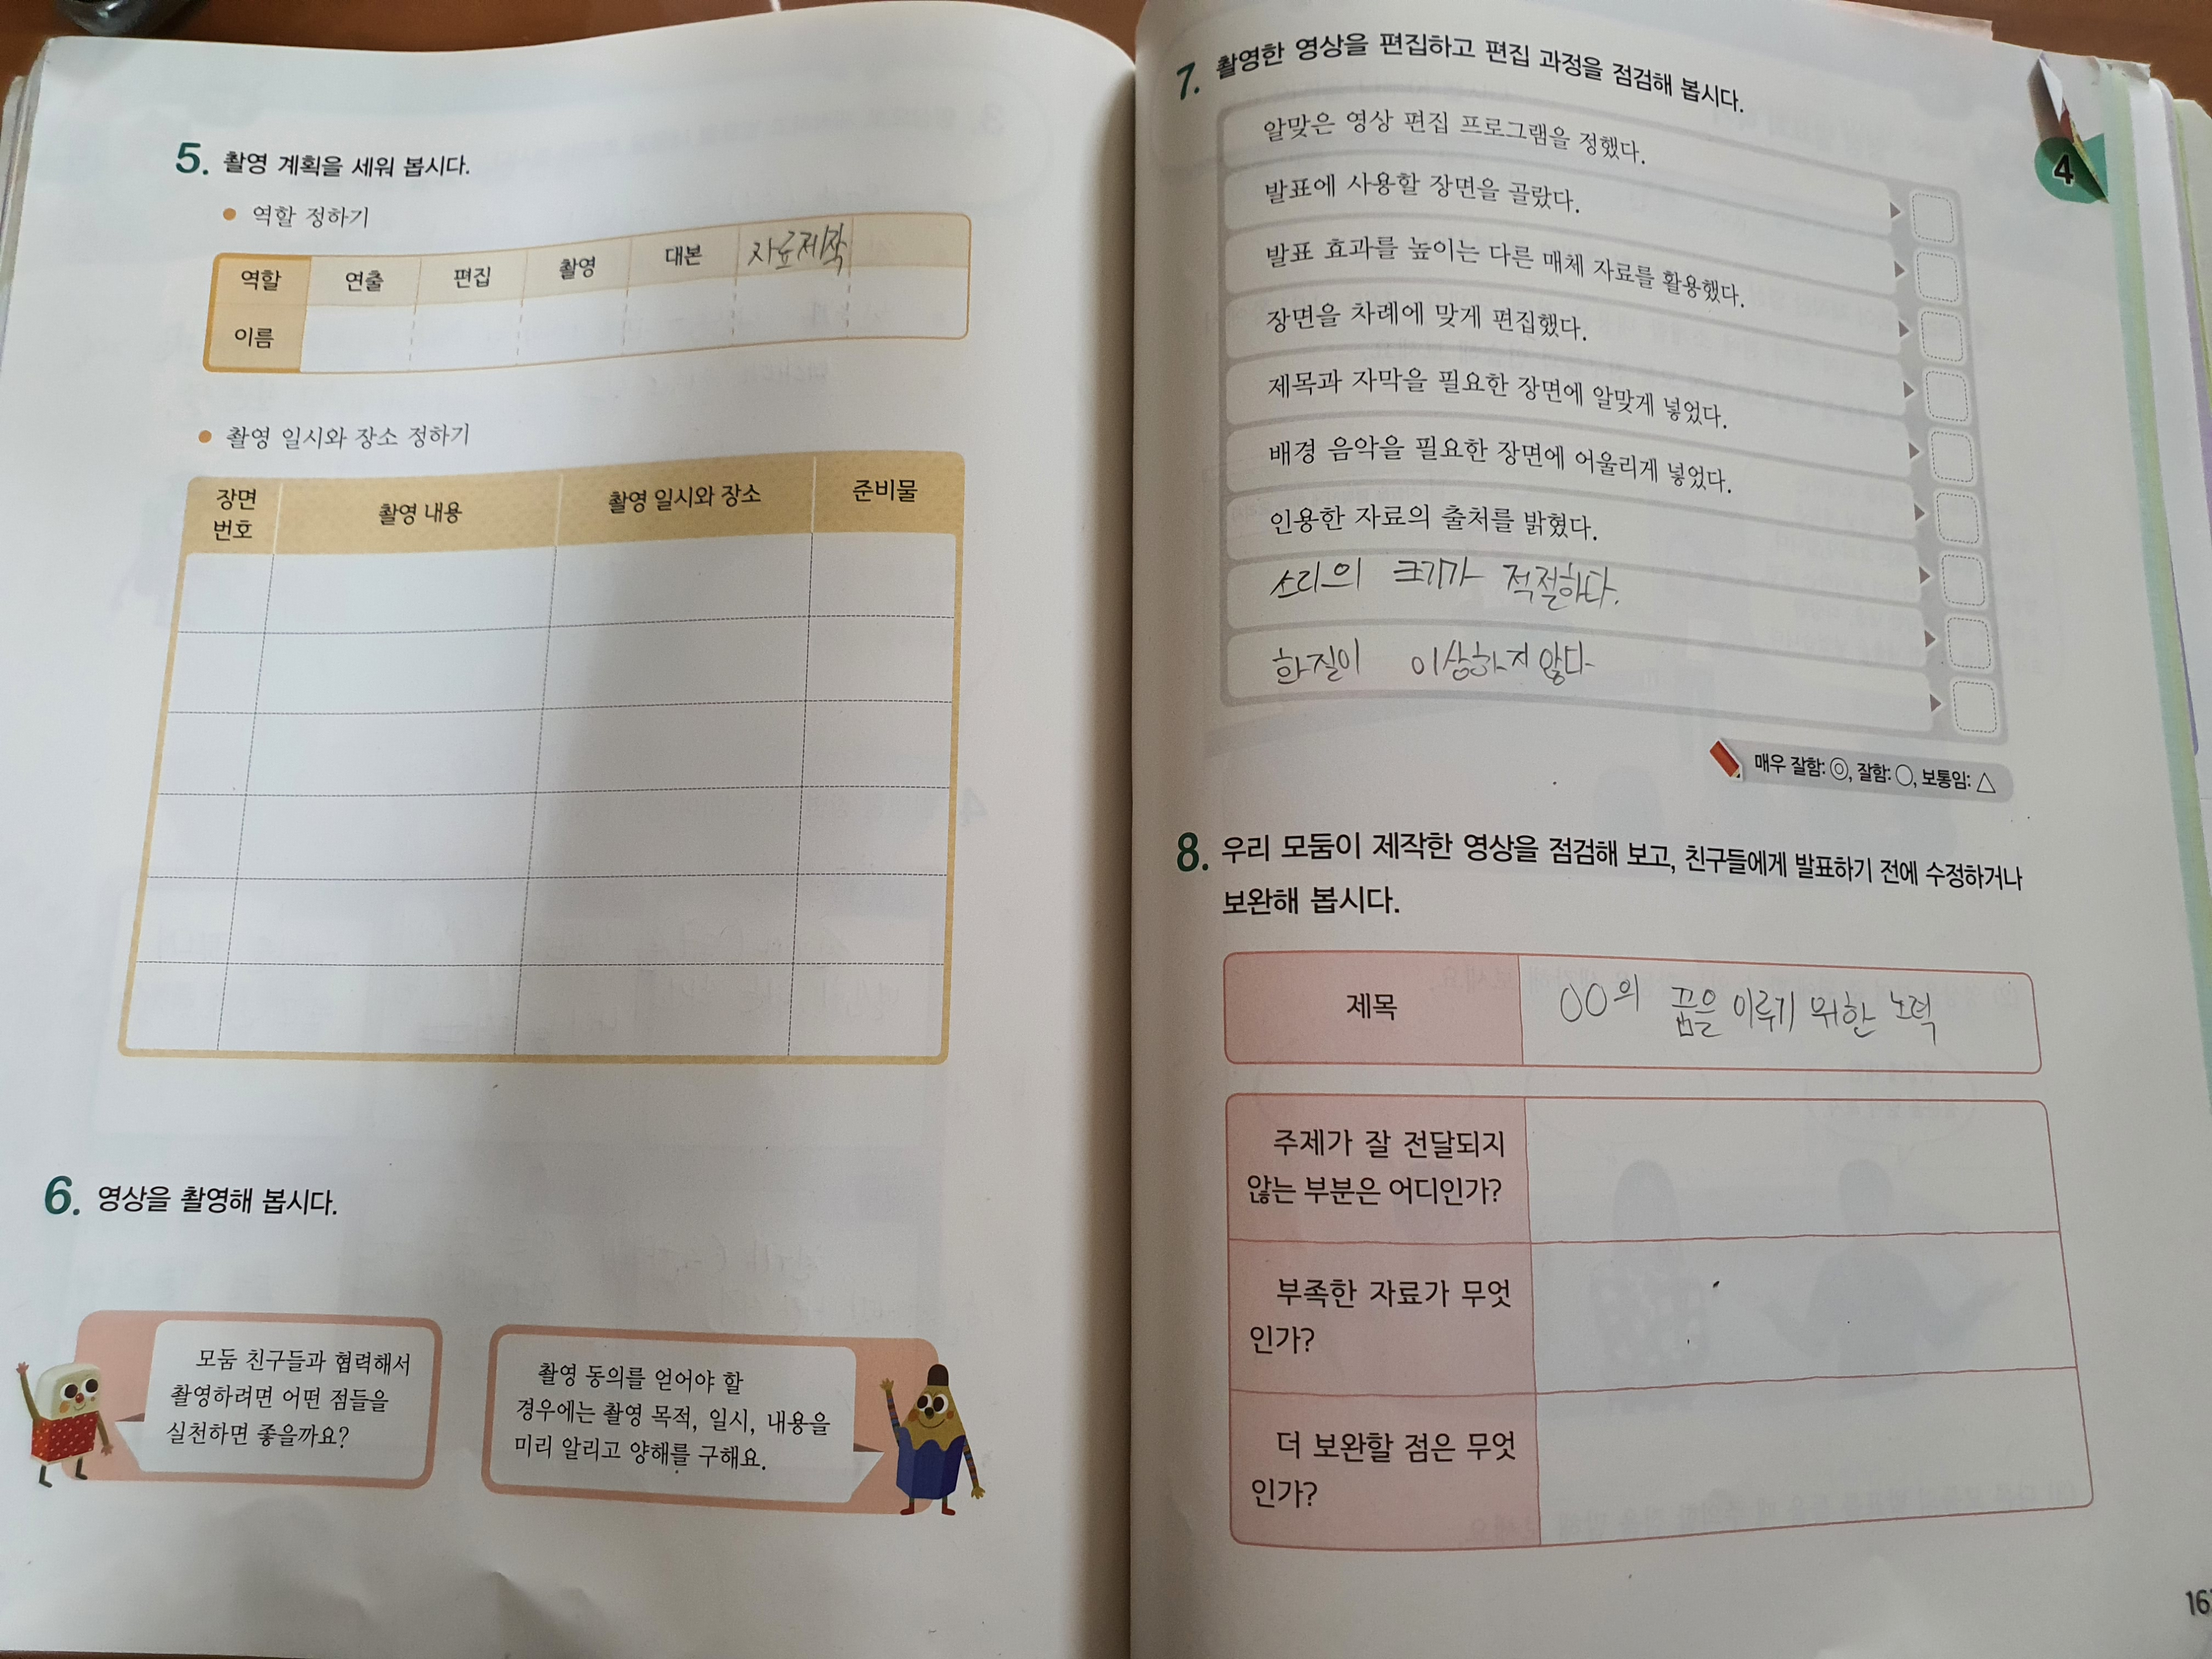 5. 촬영 계획을 세워 봅시다.
● 역할 정하기
역할 연출 편집 촬영 대본 자료제작
이름
● 촬영 일시와 장소 정하기
장면 번호 촬영 내용 촬영 일시와 장소 준비물
6. 영상을 촬영해 봅시다.
모둠 친구들과 협력해서
촬영하려면 어떤 점들을
실천하면 좋을까요?
촬영 동의를 얻어야 할
경우에는 촬영 목적, 일시, 내용을
미리 알리고 양해를 구해요.
4
7. 촬영한 영상을 편집하고 편집 과정을 점검해 봅시다.
알맞은 영상 편집 프로그램을 정했다.
발표에 사용할 장면을 골랐다.
발표 효과를 높이는 다른 매체 자료를 활용했다.
장면을 차례에 맞게 편집했다.
제목과 자막을 필요한 장면에 알맞게 넣었다.
배경 음악을 필요한 장면에 어울리게 넣었다.
인용한 자료의 출처를 밝혔다.
소리의 크기가 적절하다.
화질이 이상하지 않다
매우 잘함: ◎, 잘함: ○, 보통임: △
8. 우리 모둠이 제작한 영상을 점검해 보고, 친구들에게 발표하기 전에 수정하거나
보완해 봅시다.
제목 OO의 꿈을 이루기 위한 노력
주제가 잘 전달되지
않는 부분은 어디인가?
부족한 자료가 무엇
인가?
더 보완할 점은 무엇
인가?